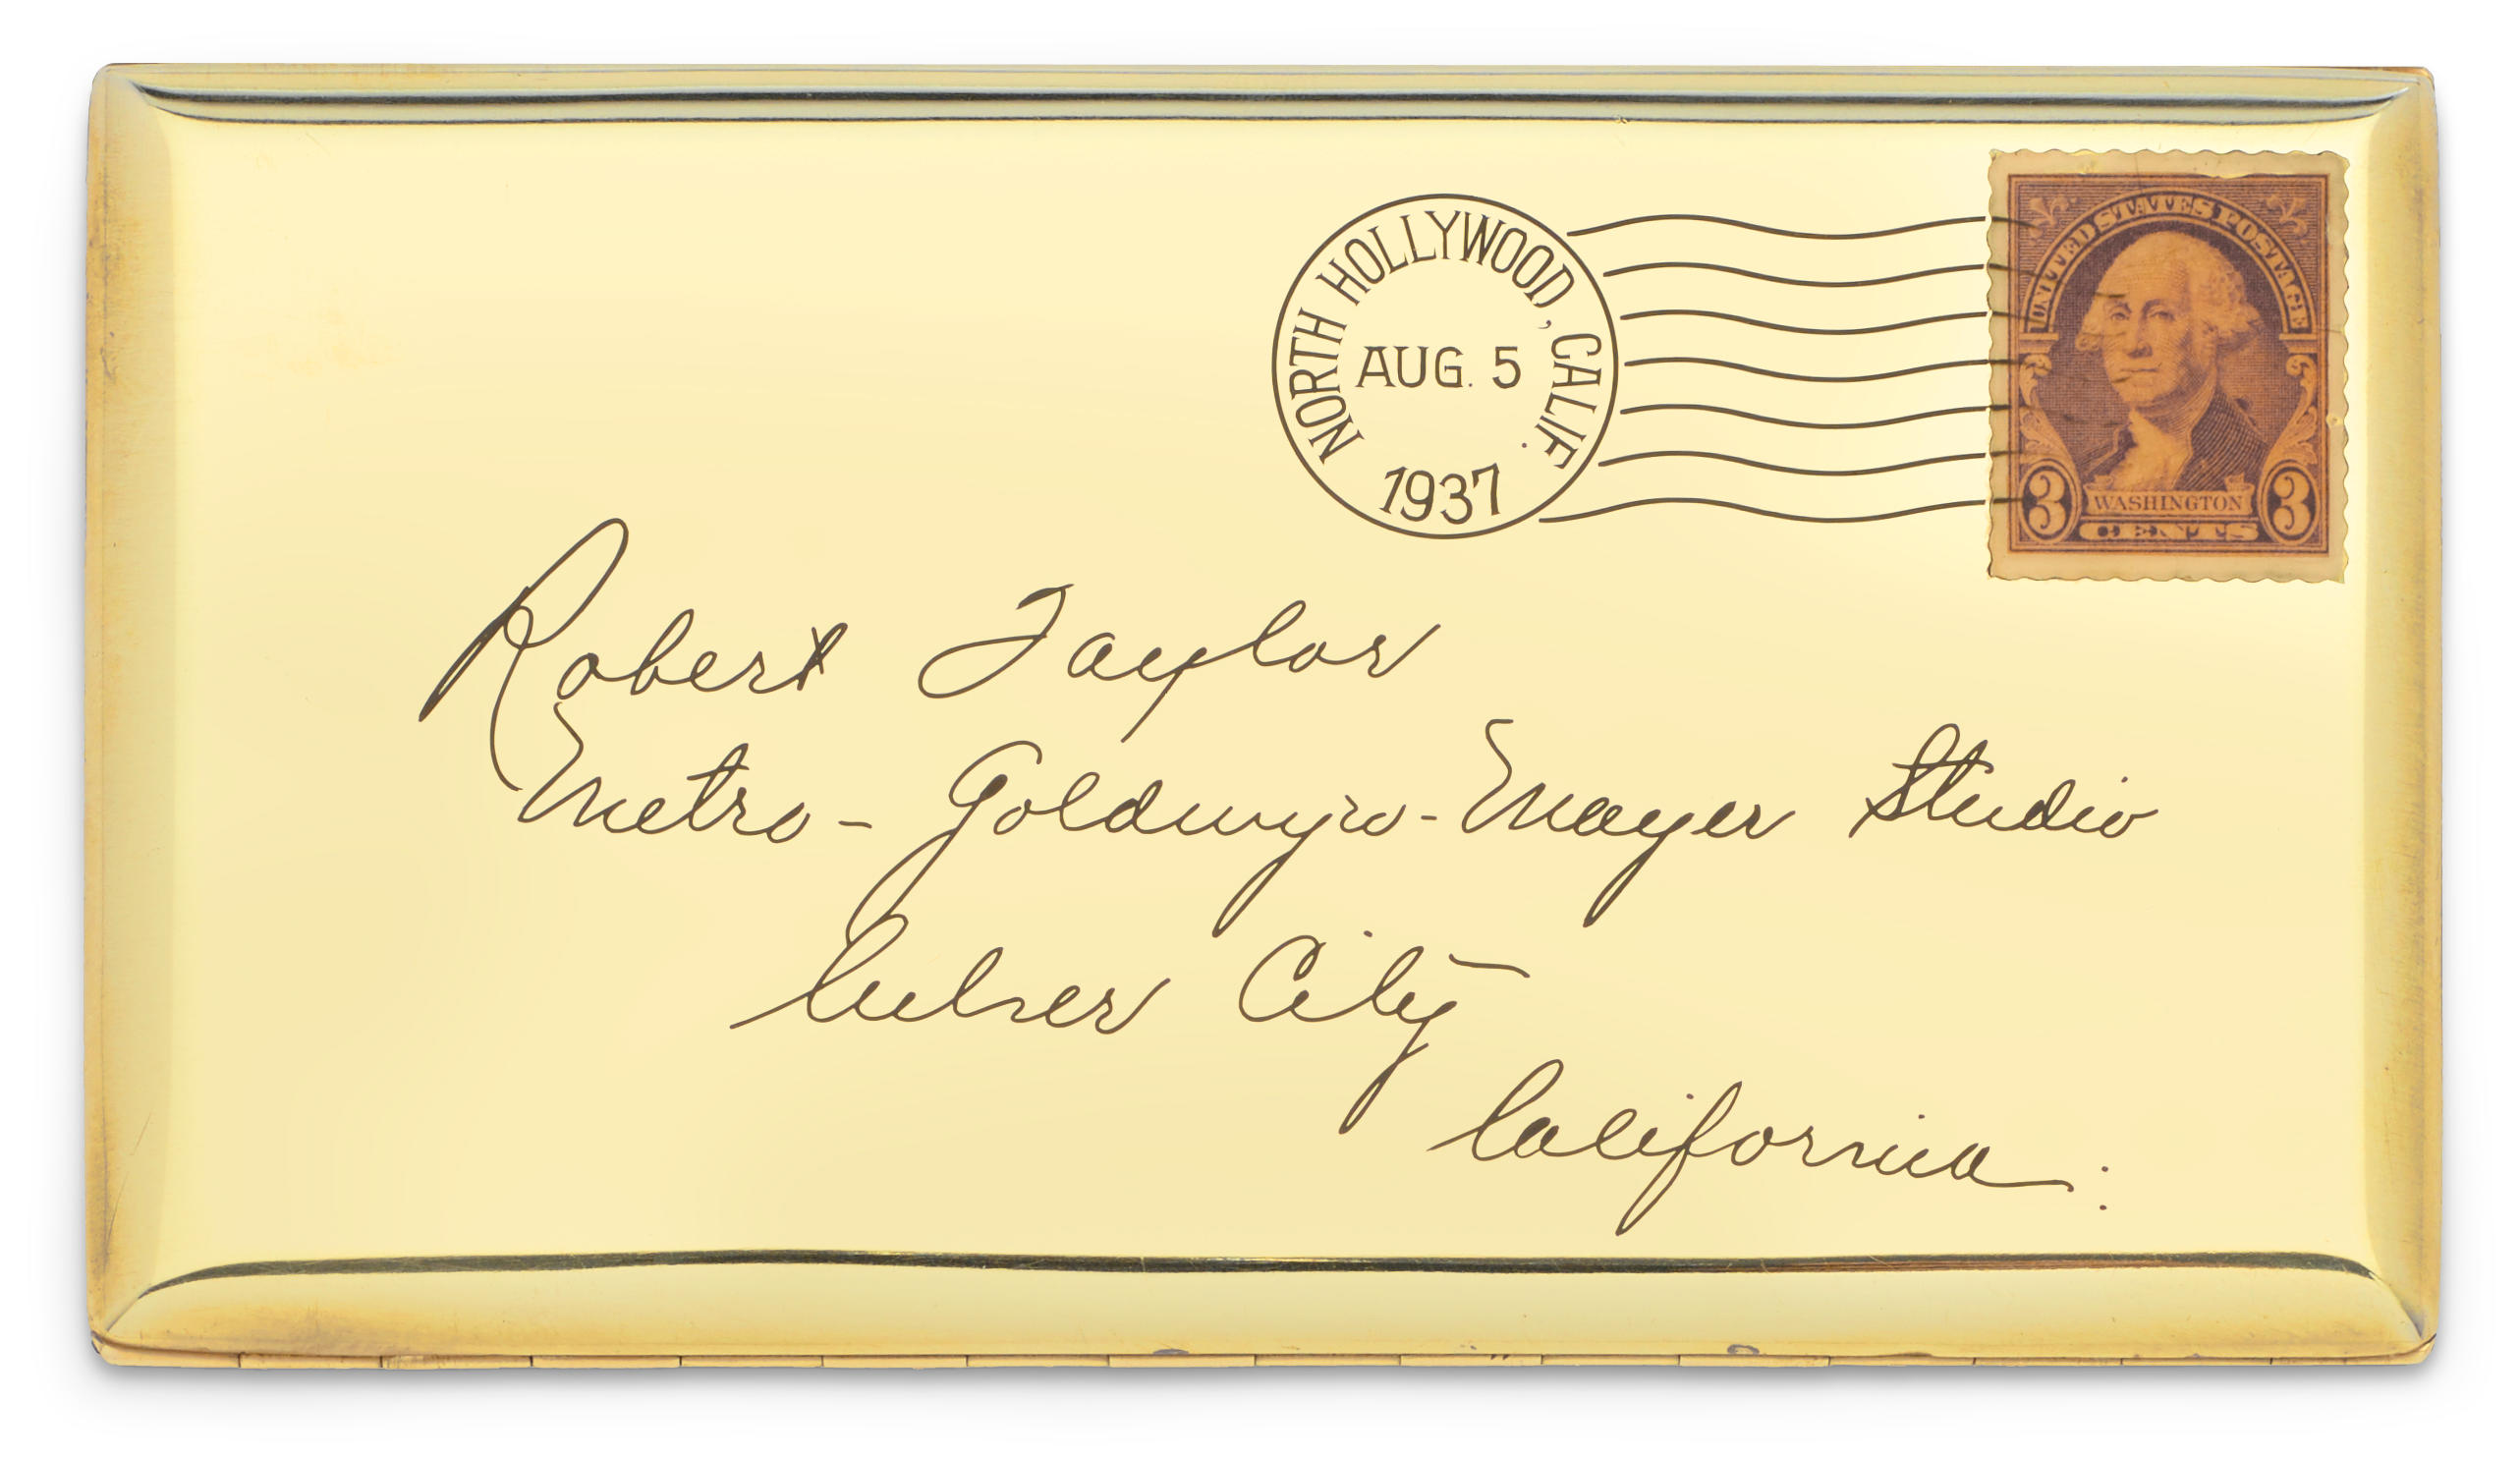 NORTH HOLLYWOOD, CALIF.
AUG. 5
1937
UNITED STATES POSTAGE
3 WASHINGTON 3
CENTS
Robert Taylor
Metro-Goldwyn-Mayer Studio
Culver City
California: